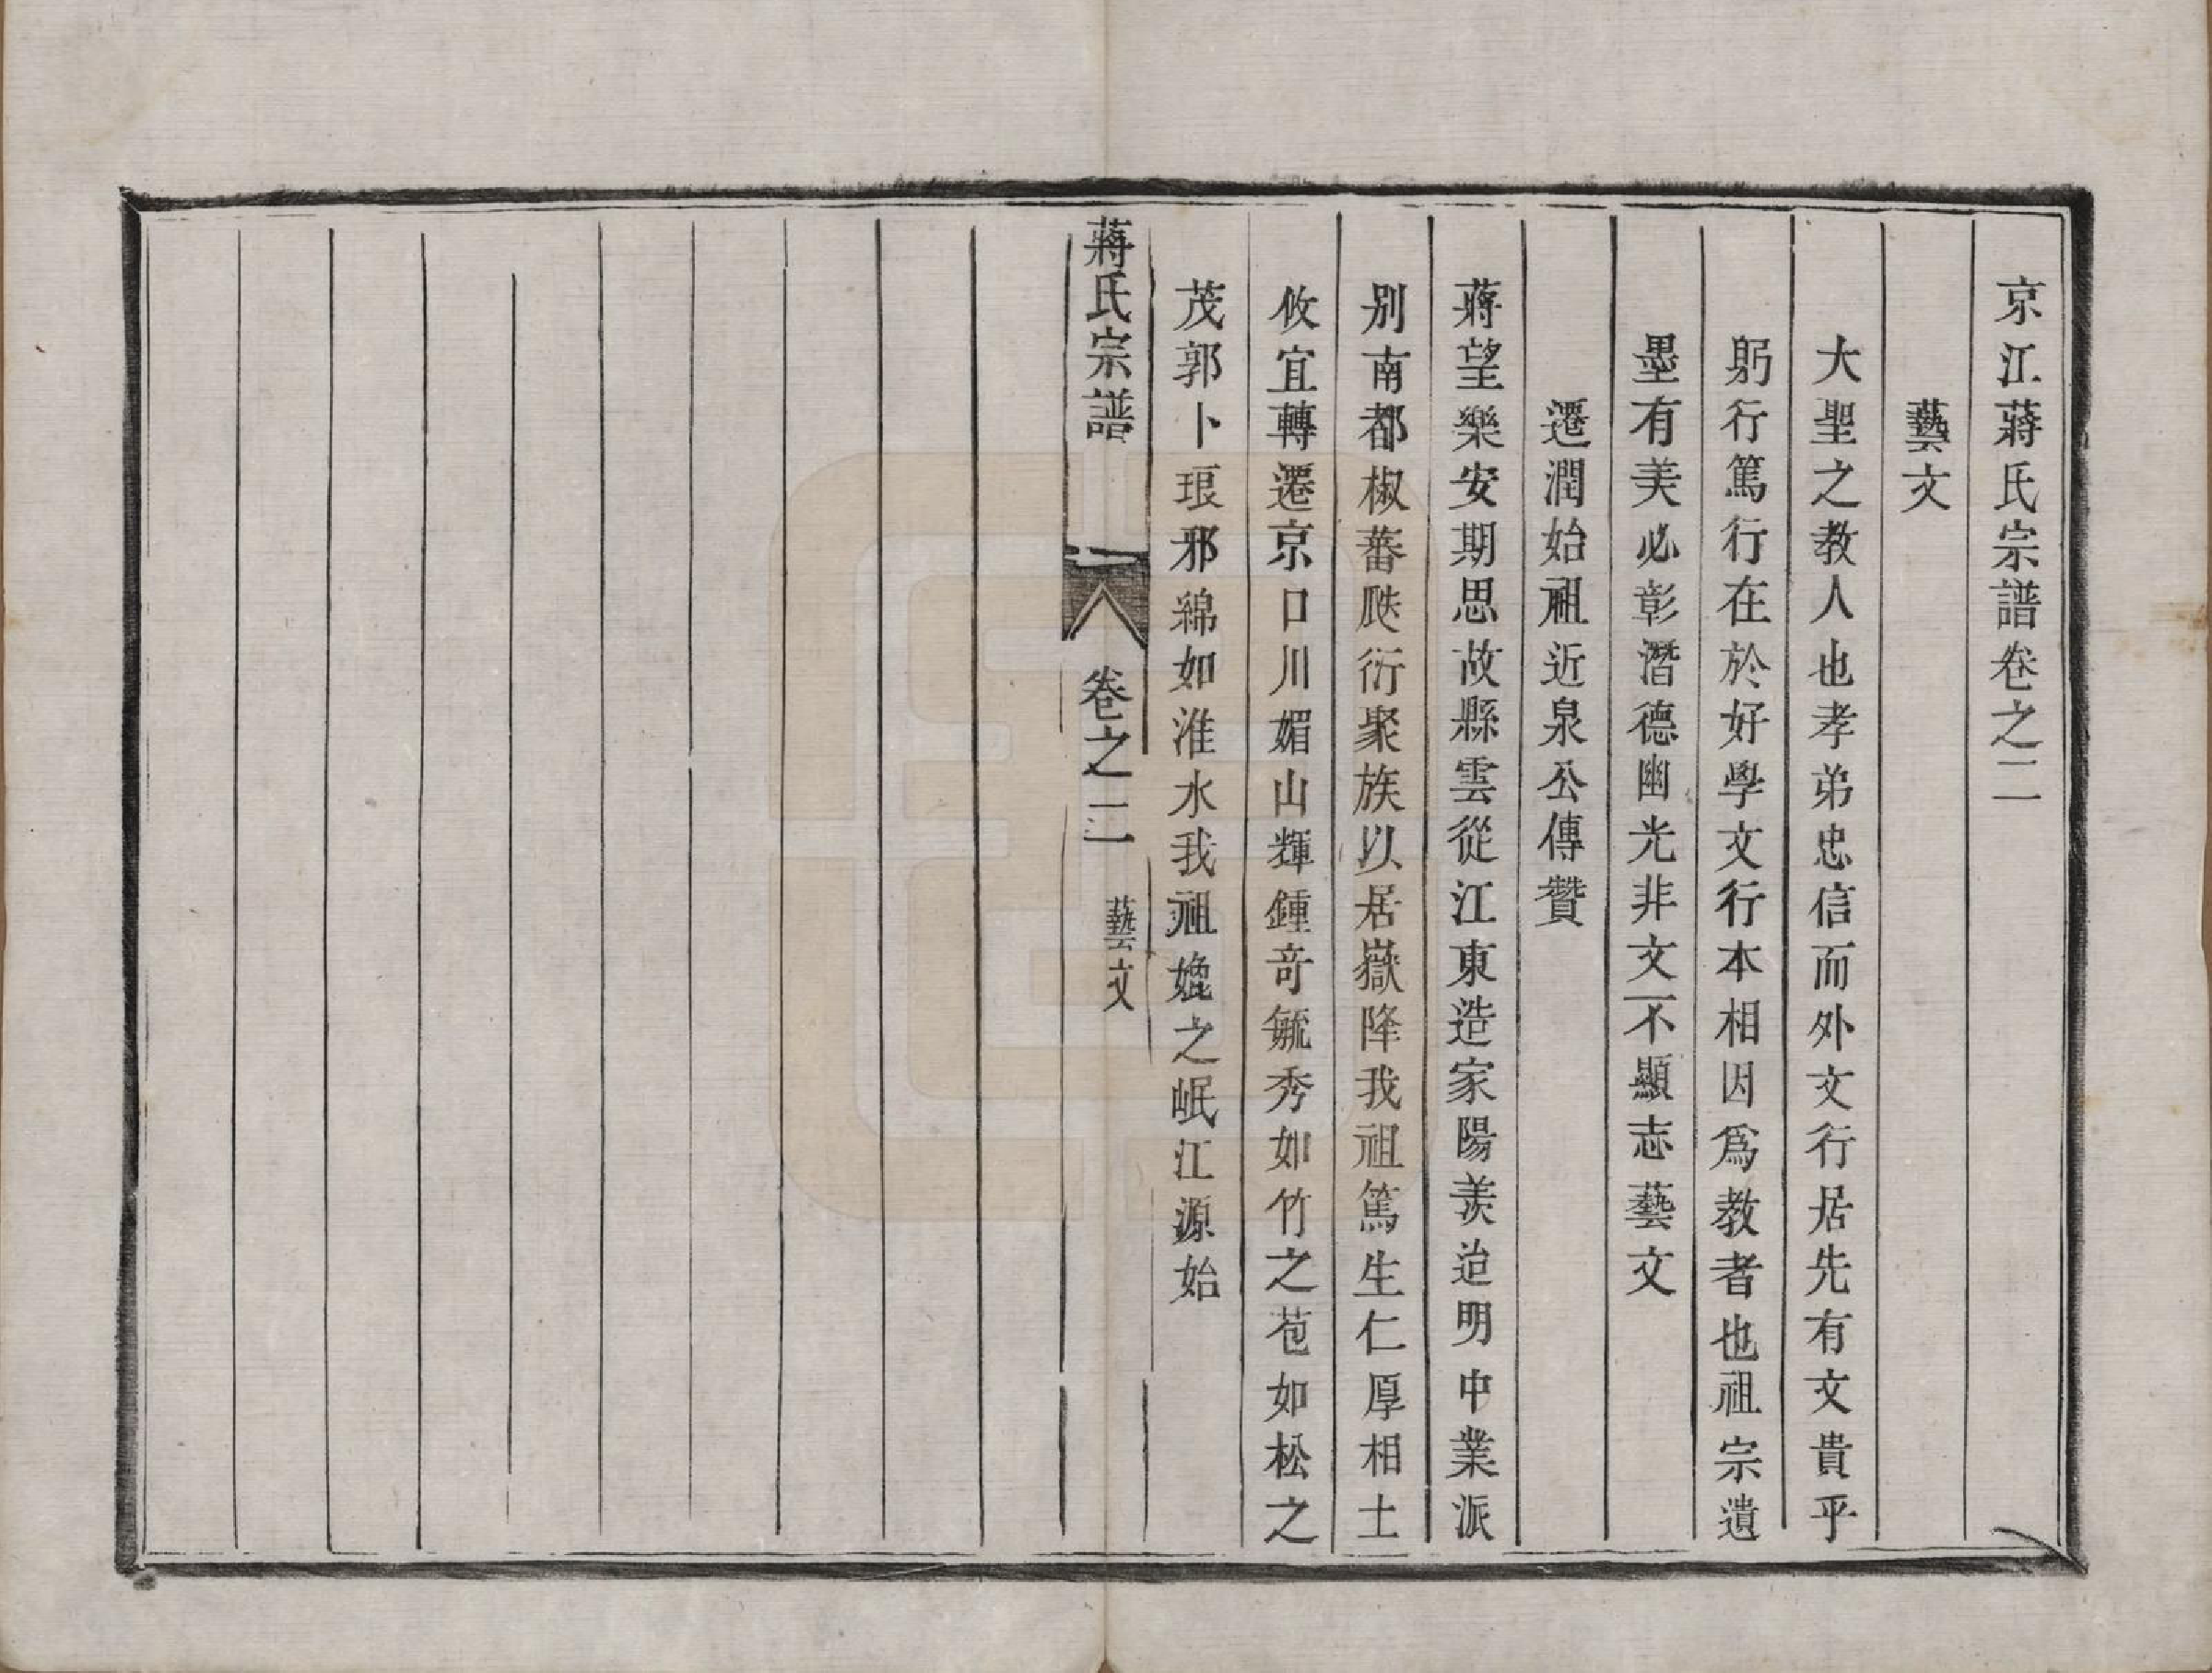 京江蔣氏宗譜卷之二
藝文
大聖之教人也孝弟忠信而外文行居先有文貴乎
躬行篤行在於好學文行本相因爲教者也祖宗遺
墨有美必彰潛德幽光非文不顯志藝文
遷潤始祖近泉公傳贊
蔣望樂安期思故縣雲從江東造家陽羨迨明中業派
别南都椒蕃瓞衍聚族以居嶽降我祖篤生仁厚相土
攸宜轉遷京口川媚山輝鍾竒毓秀如竹之苞如松之
茂郭卜琅邪綿如淮水我祖媲之岷江源始
蔣氏宗譜
卷之二
藝文